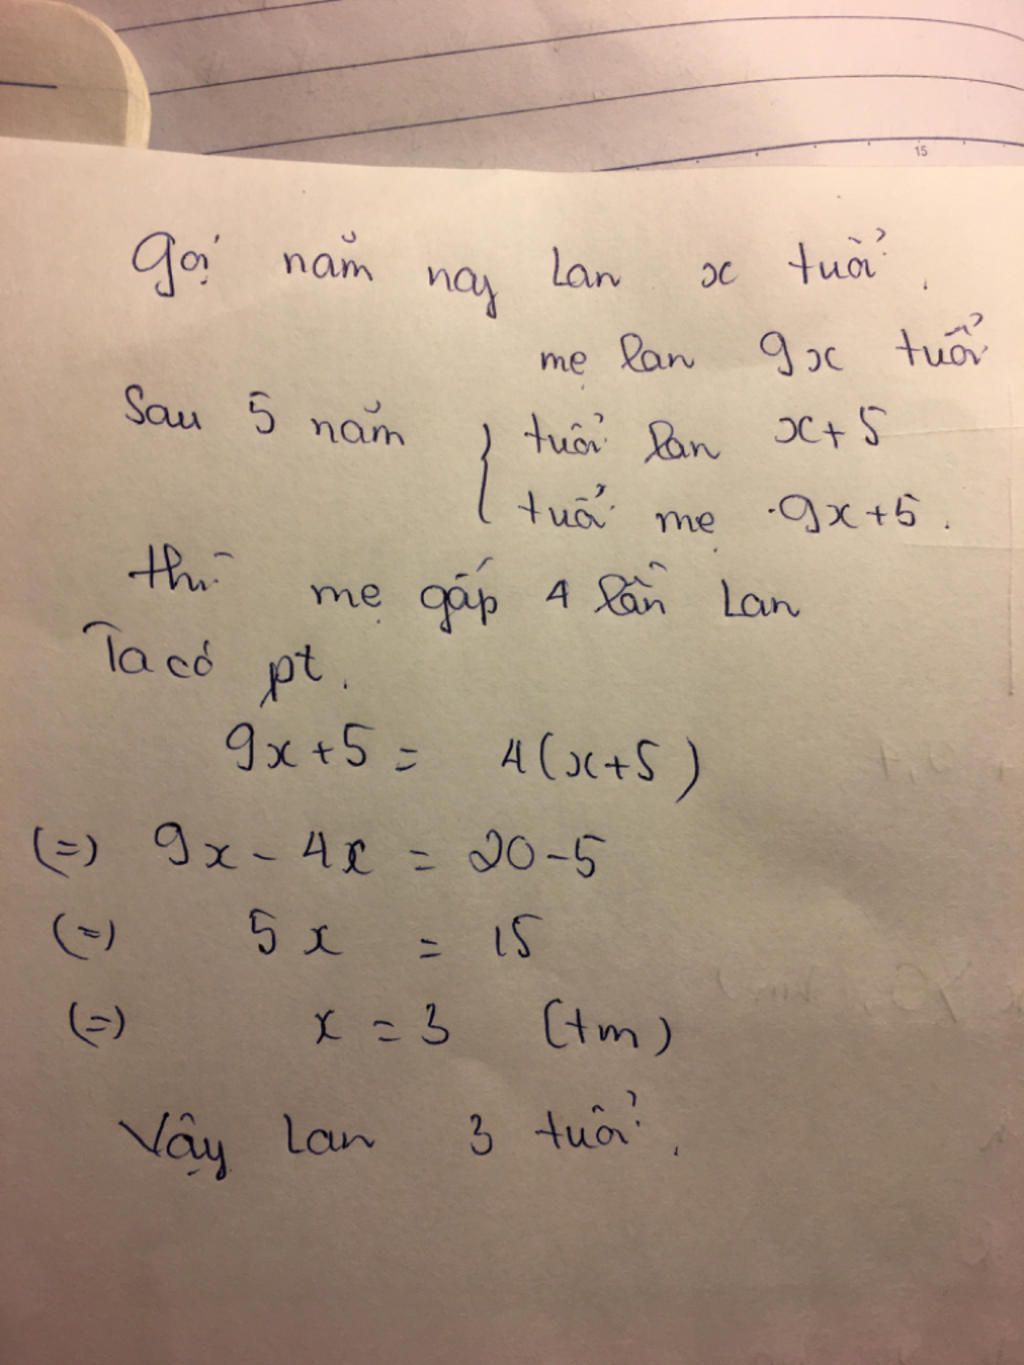 15
Gọi năm nay Lan x tuổi.
mẹ lan 9x tuổi
Sau 5 năm { tuổi lan x+5
tuổi mẹ 9x+5.
thì mẹ gấp 4 lần Lan
Ta có pt.
9x+5 = 4(x+5)
(=) 9x - 4x = 20-5
(=) 5x = 15
(=) x = 3 (tm)
Vậy Lan 3 tuổi.